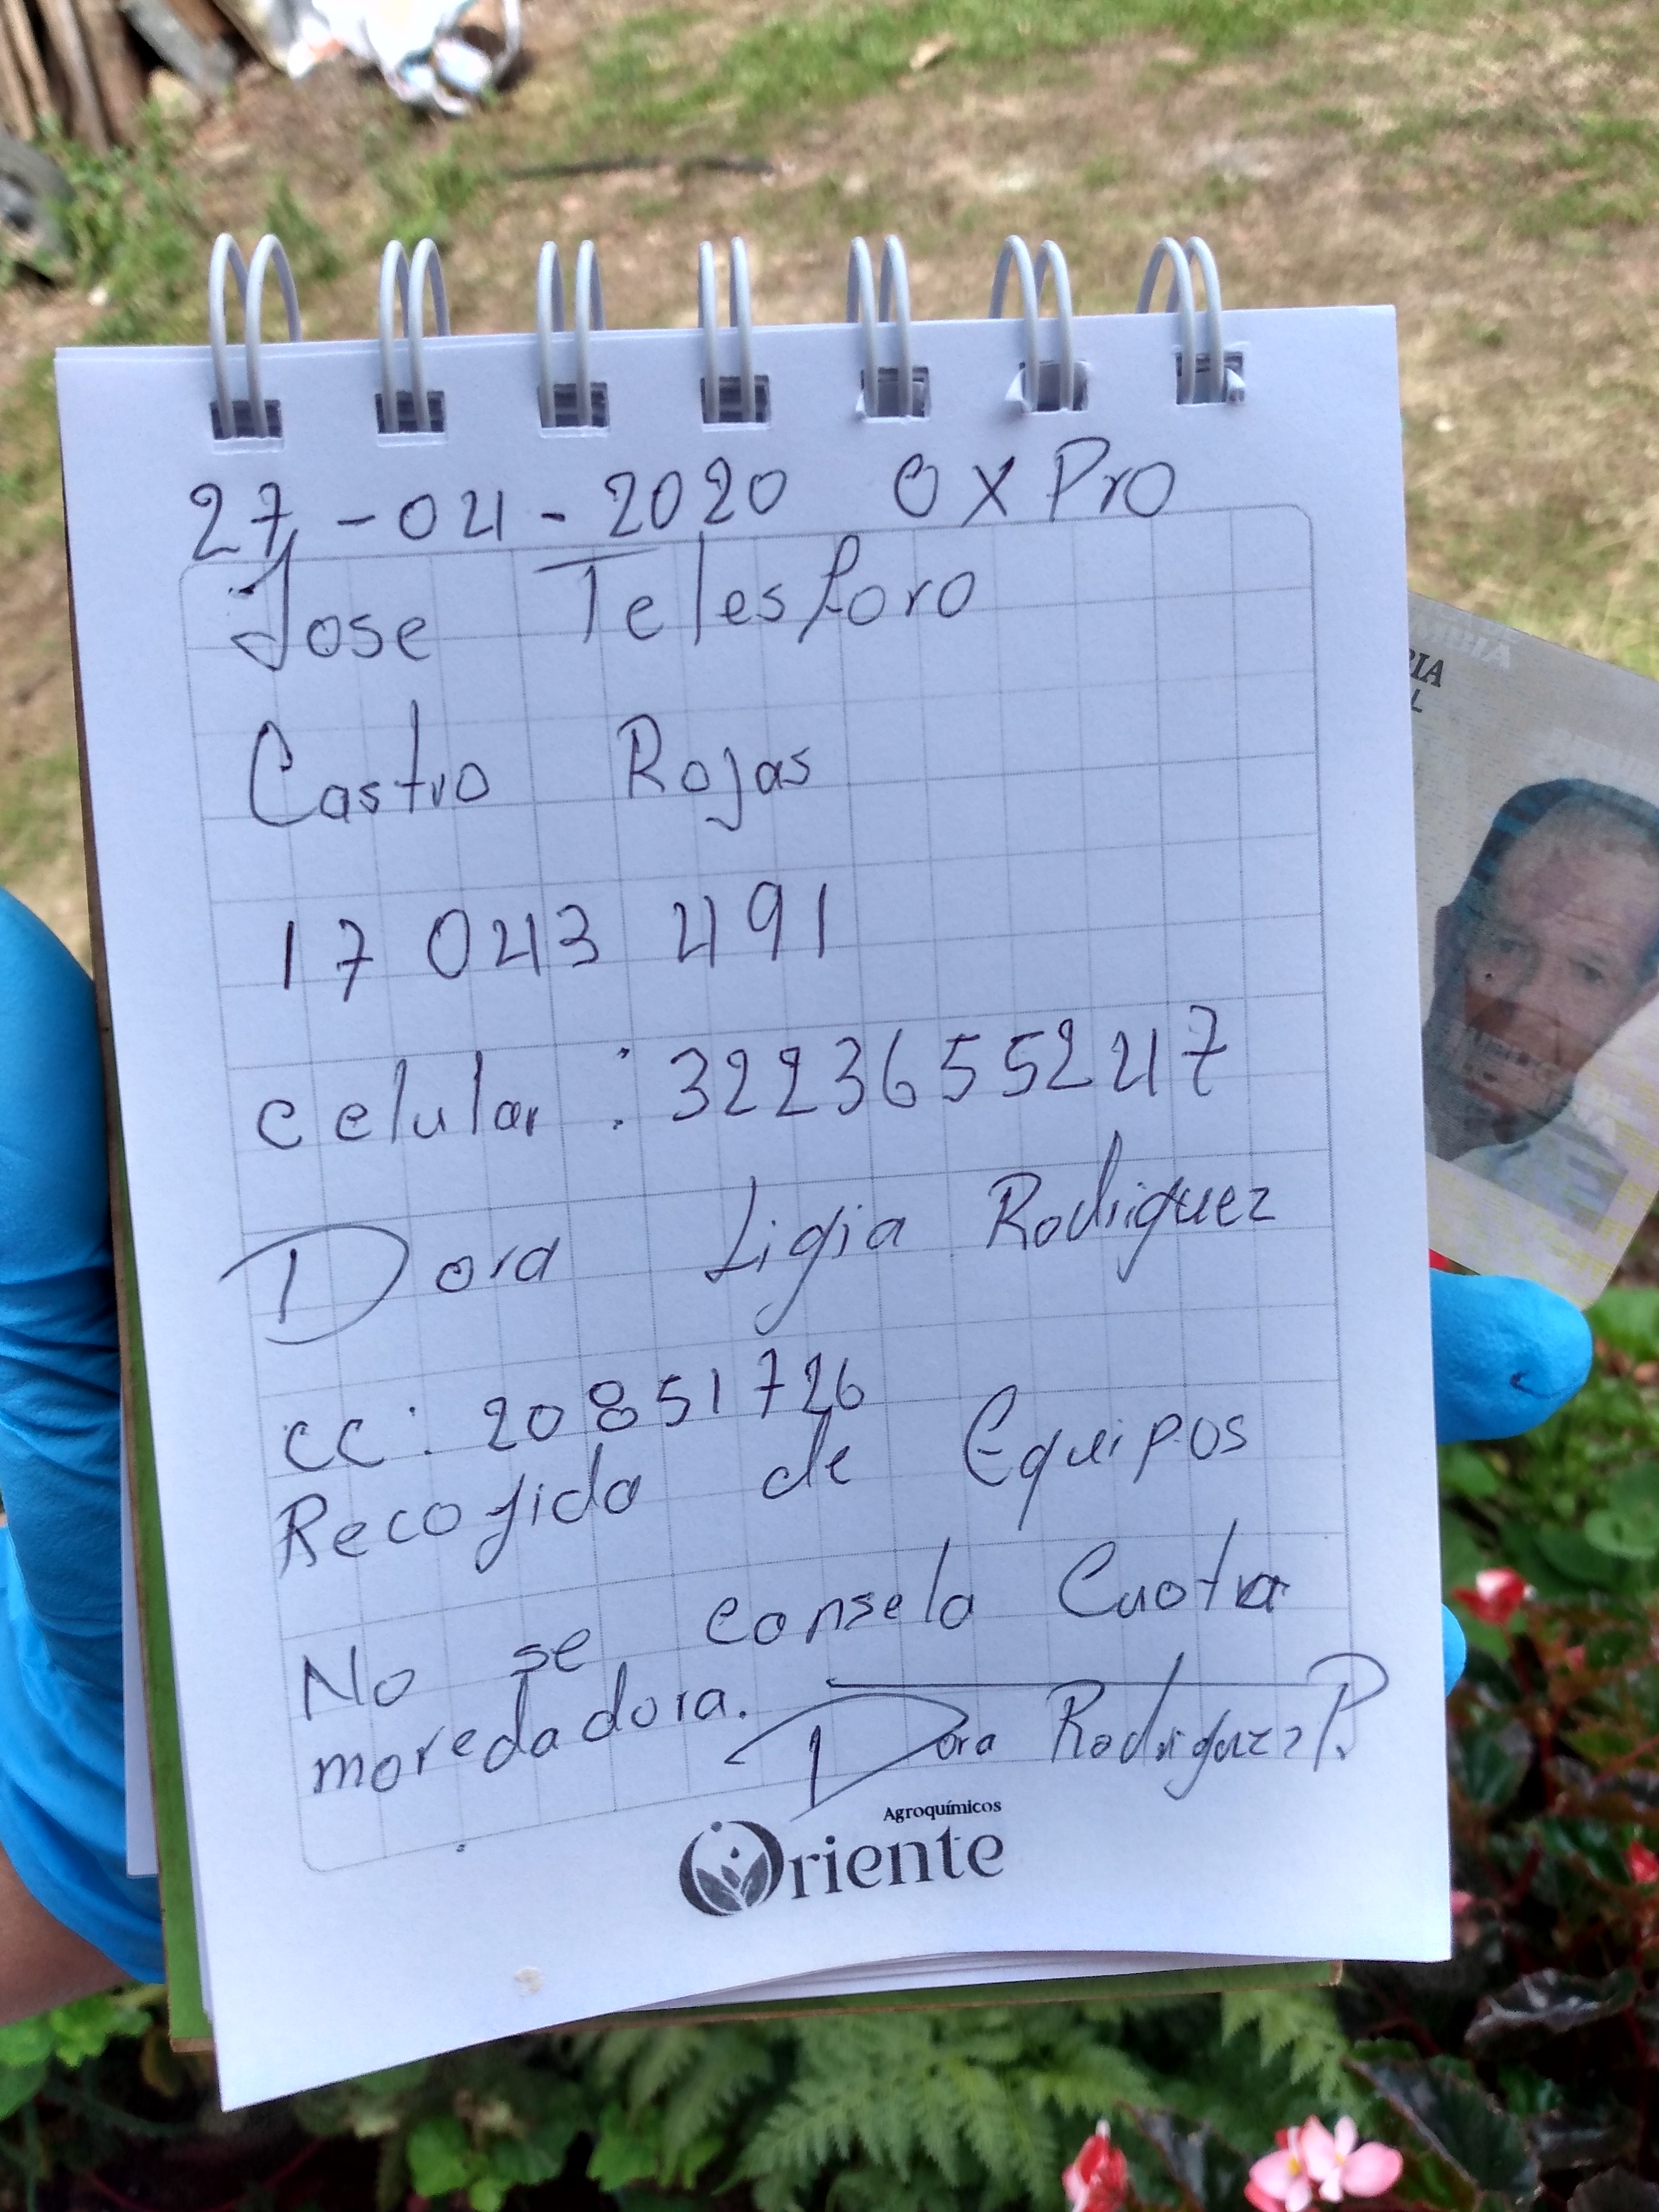 27-04-2020 OXPro
Jose Telesforo
Castro Rojas
17 043 491
celular : 3223655247
Dora Ligia Rodriguez
CC: 20851726
Recogida de Equipos
No se consela Cuota
moredadora.
Dora Rodriguez P.
Agroquímicos
Oriente